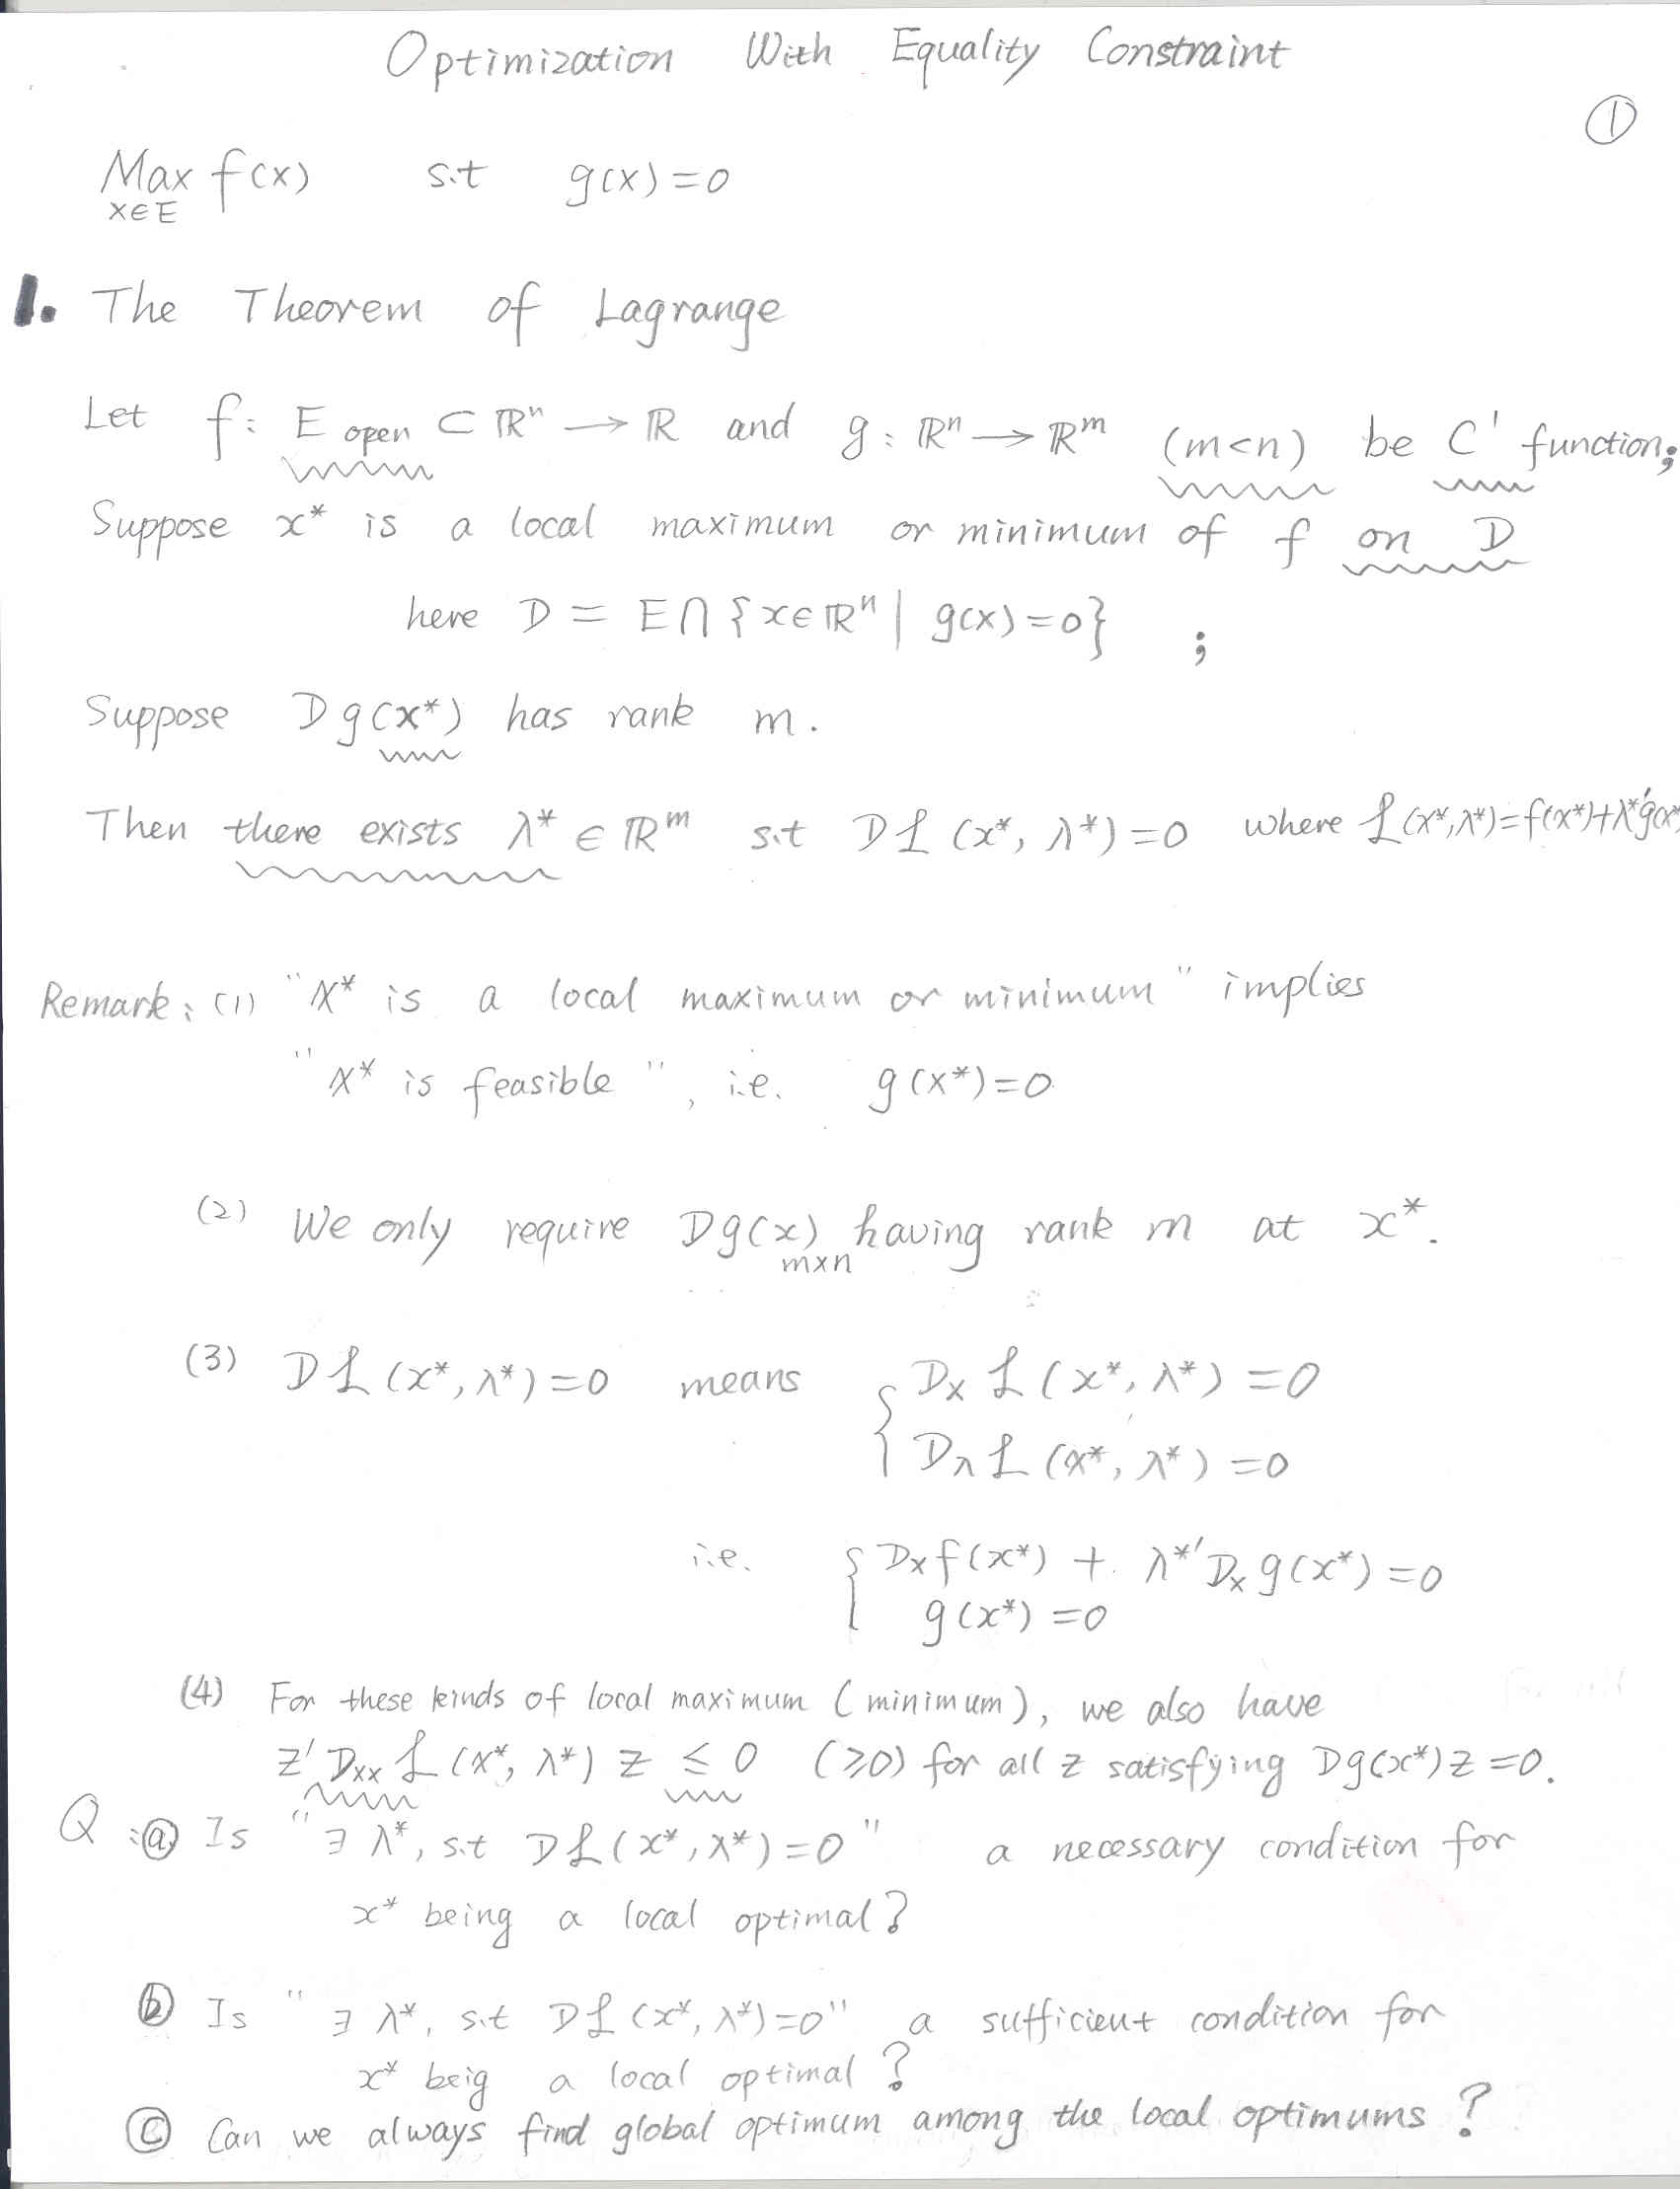 Optimization With Equality Constraint
①
Max f(x) s.t g(x)=0
x∈E
1. The Theorem of Lagrange
Let f: E open ⊂ ℝⁿ → ℝ and g: ℝⁿ → ℝᵐ (m<n) be C' function;
Suppose x* is a local maximum or minimum of f on D
here D = E∩{x∈ℝⁿ | g(x)=0} ;
Suppose Dg(x*) has rank m.
Then there exists λ* ∈ ℝᵐ s.t Dℒ(x*, λ*)=0 where ℒ(x*,λ*)=f(x*)+λ*'g(x*)
Remark: (1) "x* is a local maximum or minimum" implies
"x* is feasible", i.e. g(x*)=0
(2) We only require Dg(x) having rank m at x*.
m×n
(3) Dℒ(x*,λ*)=0 means { Dₓℒ(x*, λ*)=0
D_λ ℒ(x*, λ*)=0
i.e. { Dₓf(x*) + λ*'Dₓg(x*)=0
g(x*)=0
(4) For these kinds of local maximum (minimum), we also have
z'Dₓₓℒ(x*, λ*) z ≤ 0 (≥0) for all z satisfying Dg(x*)z=0.
Q: ⓐ Is "∃ λ*, s.t Dℒ(x*,λ*)=0" a necessary condition for
x* being a local optimal?
ⓑ Is "∃ λ*, s.t Dℒ(x*,λ*)=0" a sufficient condition for
x* beig a local optimal?
ⓒ Can we always find global optimum among the local optimums?